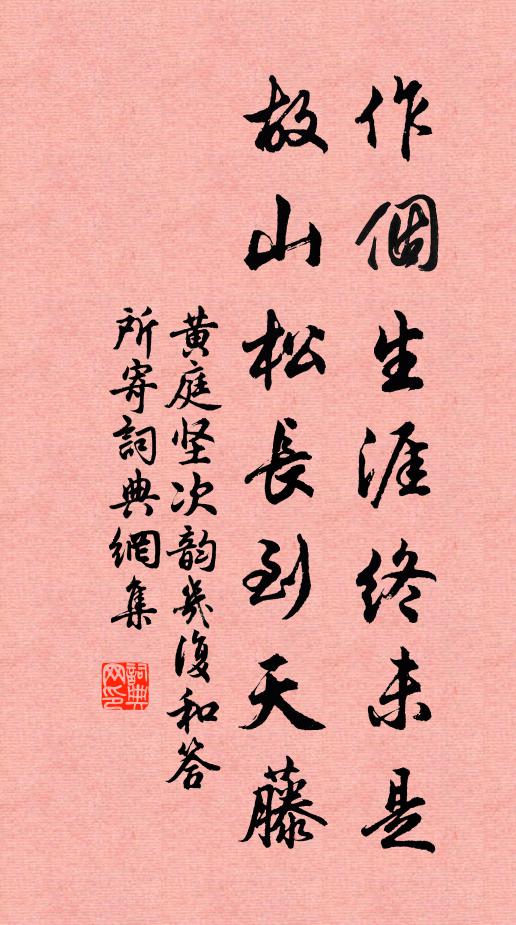 作個生涯終未是
故山松長到天藤
黄庭坚次韵幾復和答
所寄詞典網集
詞典网印